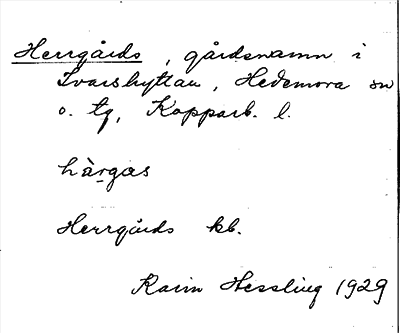 Herrgårds, gårdsnamn i
Ivarshyttan, Hedemora sn
o. tg, Kopparb. l.
hàrgas
Herrgårds kb.
Karin Hessling 1929